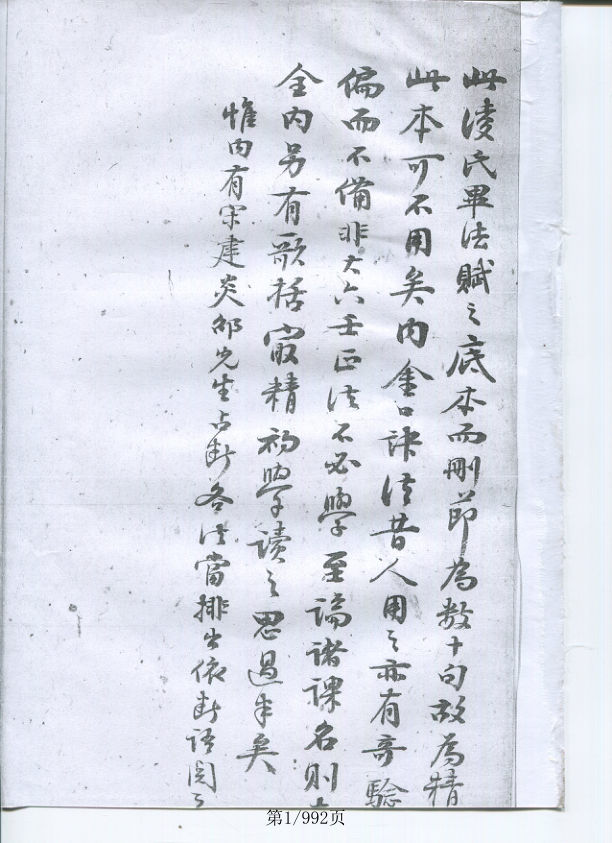 此淩氏畢法賦之底本而刪節為數十句故為精
此本可不用矣内金口訣法昔人用之亦有奇驗
偏而不備非大六壬正法不必學至論諸課名則
全内另有歌括最精初學讀之思過半矣
惟内有宋建炎邵先生占断各法當排出依断語閱之
第1/992页